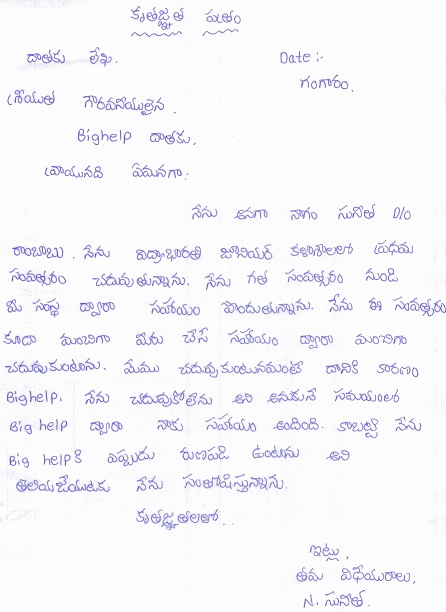 కృతజ్ఞత పత్రం
దాతకు లేఖ.
Date :-
గంగారం.
శ్రీయుత గౌరవనీయులైన.
Bighelp దాతకు,
వ్రాయునది ఏమనగా:
నేను అనగా నాగం సునీత D/o
రాంబాబు. నేను విద్యాభారతి జూనియర్ కళాశాలలో ప్రథమ
సంవత్సరం చదువుతున్నాను. నేను గత సంవత్సరం నుండి
మీ సంస్థ ద్వారా సహాయం పొందుతున్నాను. నేను ఈ సంవత్సరం
కూడా మంచిగా మీరు చేసే సహాయం ద్వారా మంచిగా
చదువుకుంటాను. మేము చదువుకుంటున్నమంటే దానికి కారణం
Bighelp. నేను చదువుకోలేను అని అనుకునే సమయంలో
Big help ద్వారా నాకు సహాయం అందింది. కాబట్టి నేను
Big helpకి ఎప్పుడు రుణపడి ఉంటాను అని
తెలియజేయుటకు నేను సంతోషిస్తున్నాను.
కృతజ్ఞతలతో..
ఇట్లు,
తమ విధేయురాలు,
N. సునీత.